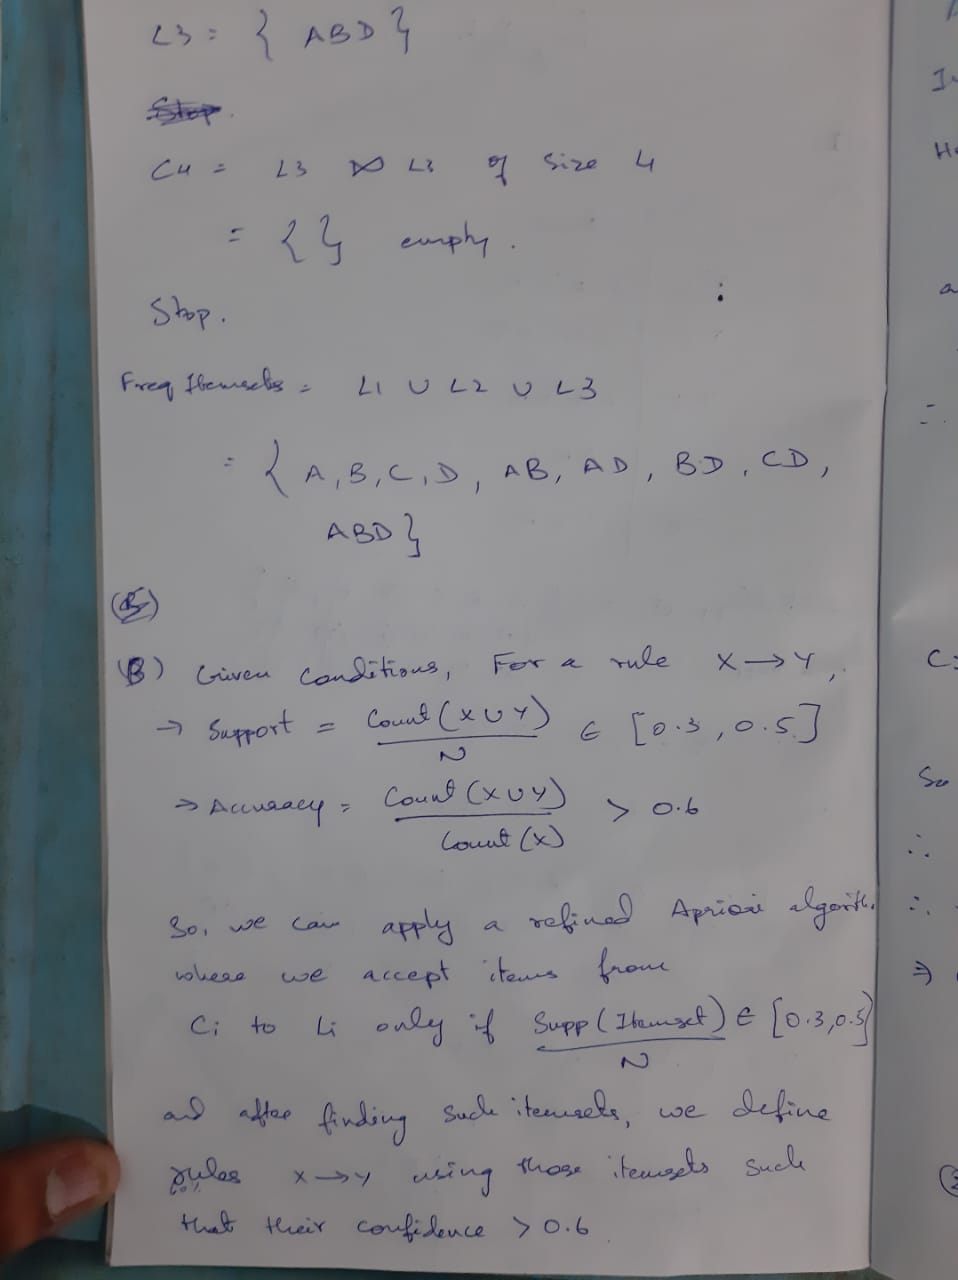 L3 = { ABD }
Stop.
C4 = L3 ⋈ L3 of size 4
= { } empty.
Stop.
Freq Itemsets = L1 ∪ L2 ∪ L3
= { A, B, C, D, AB, AD, BD, CD,
ABD }
(B)
(B) Given conditions, For a rule X → Y,
→ Support = Count (X ∪ Y) / N ∈ [0.3, 0.5]
→ Accuracy = Count (X ∪ Y) / Count (X) > 0.6
So, we can apply a refined Apriori algorith.
where we accept items from
Ci to Li only if Supp (Itemset) / N ∈ [0.3, 0.5]
and after finding such itemsets, we define
rules X → Y using those itemsets such
that their confidence > 0.6